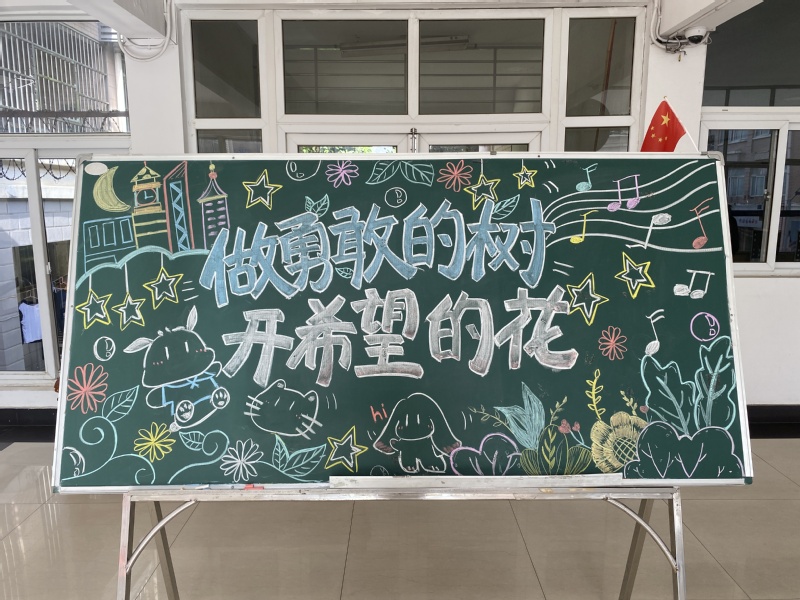 做勇敢的树
开希望的花
hi